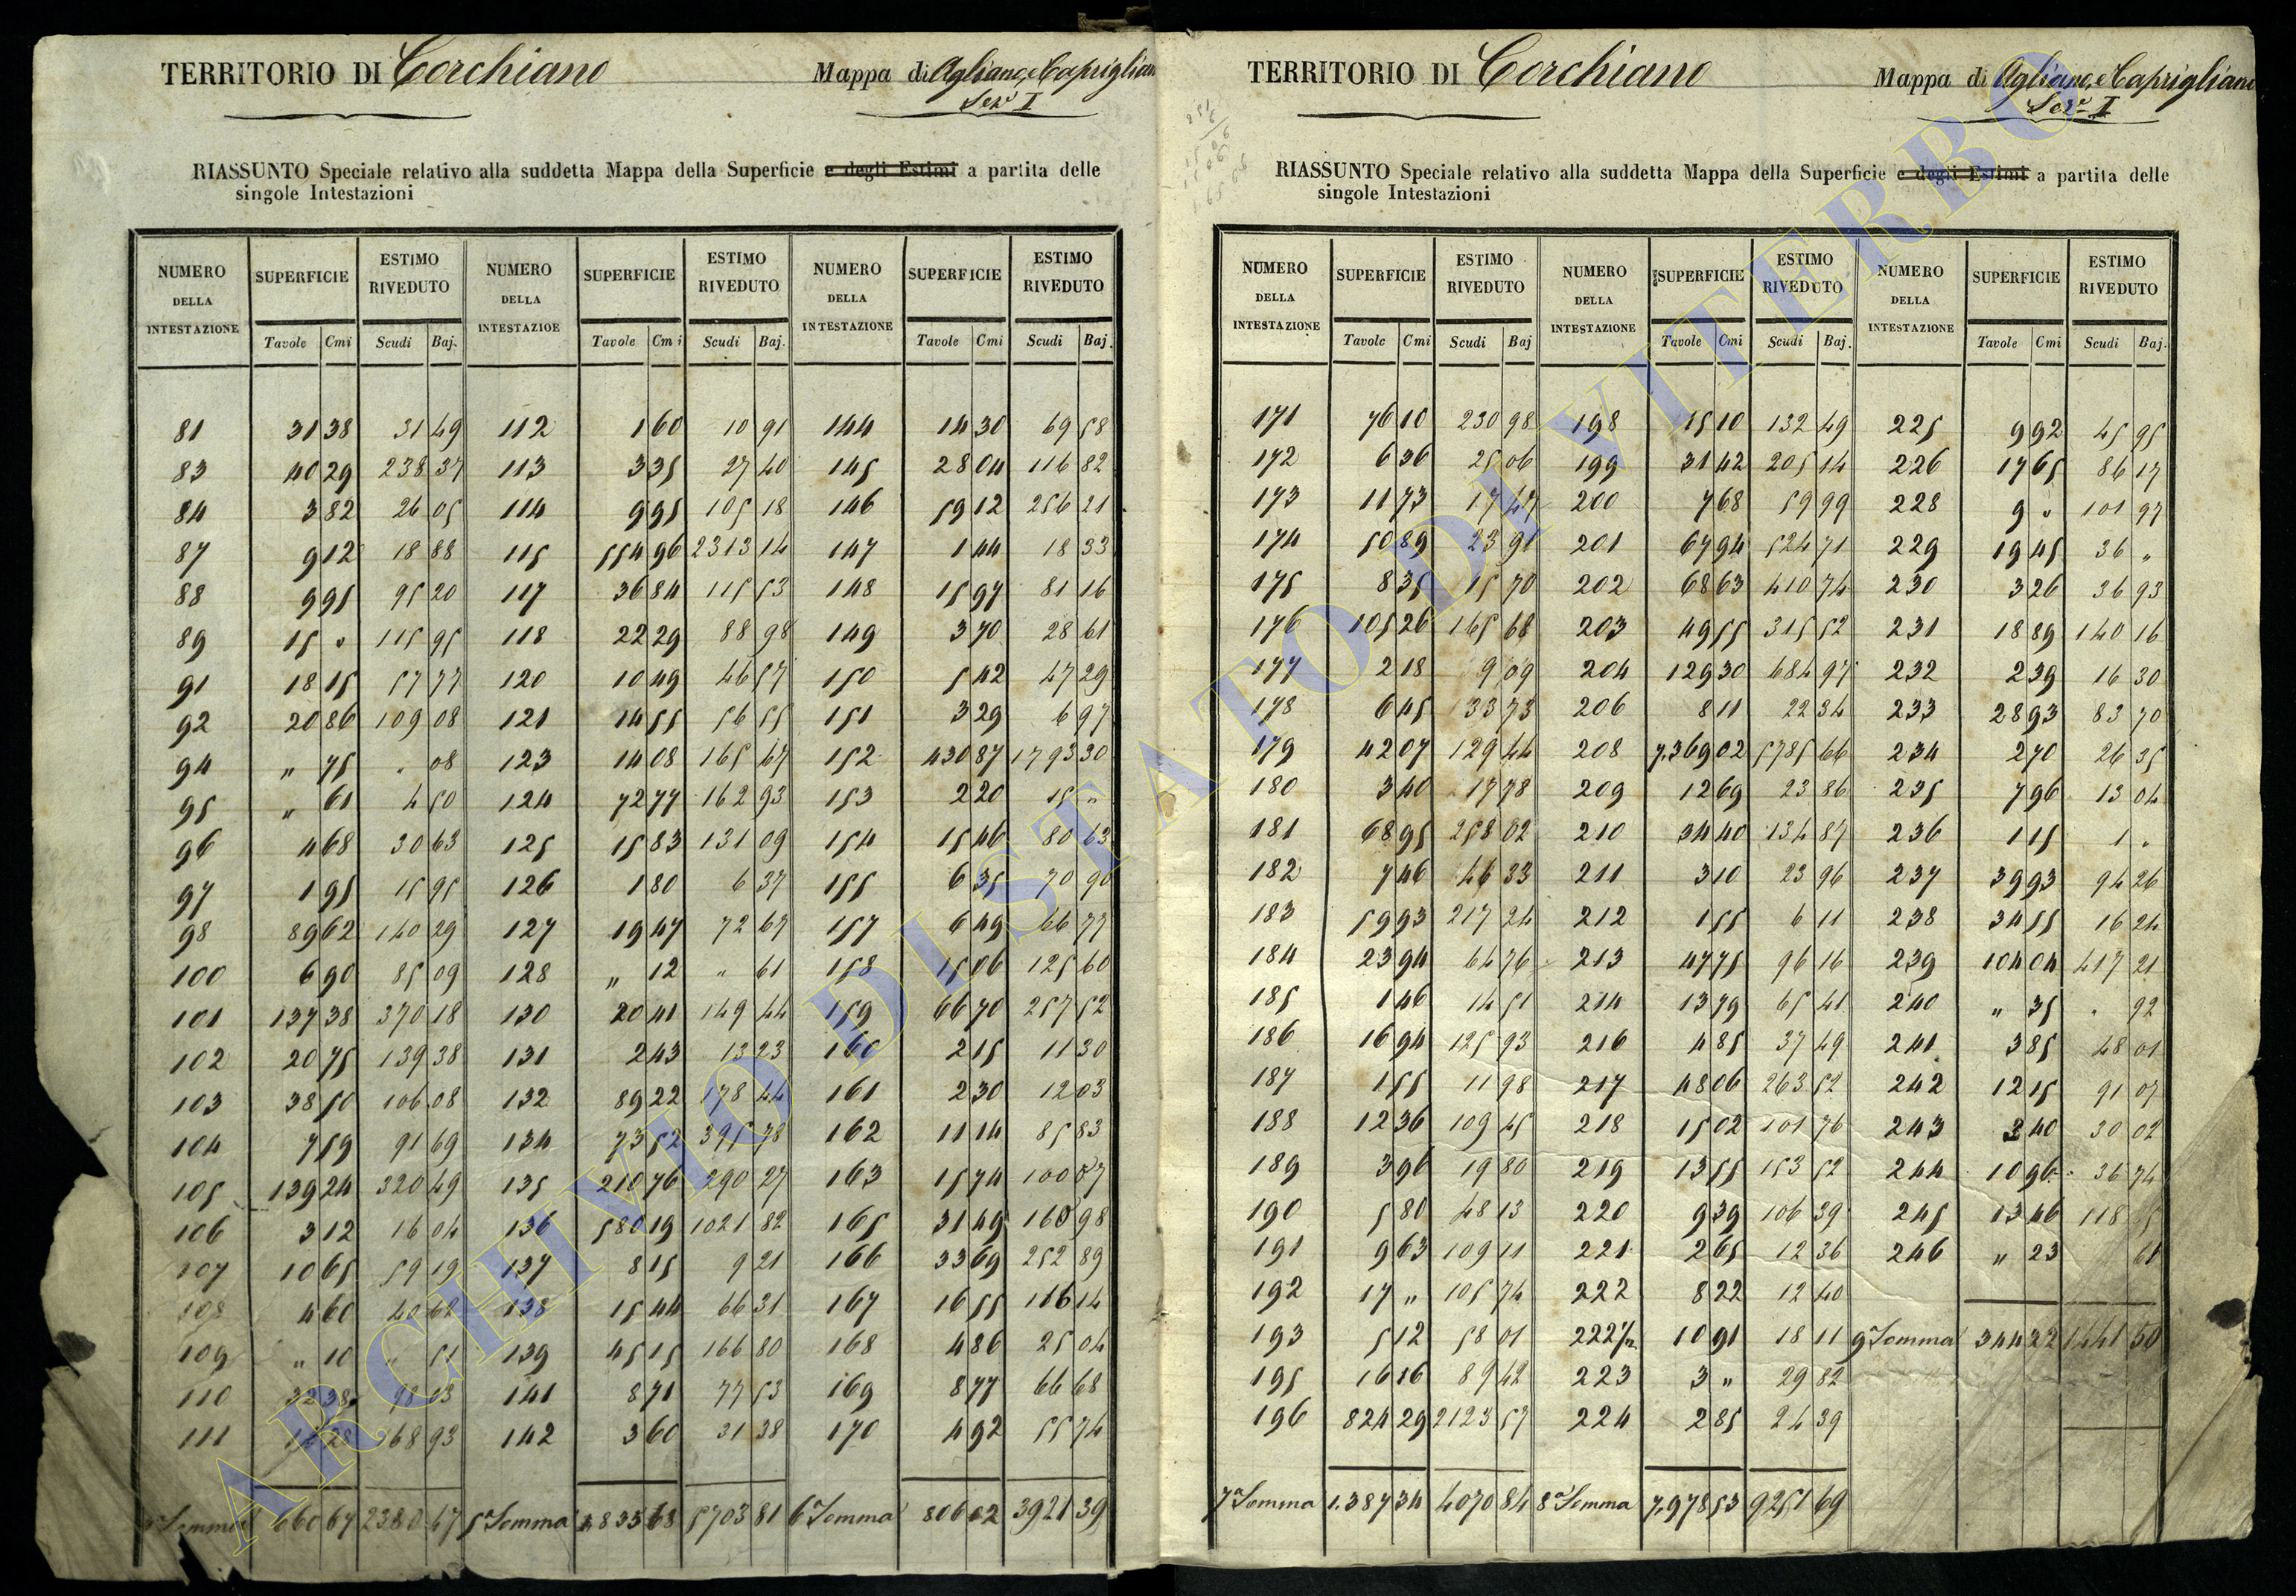 TERRITORIO DI Corchiano Mappa di Agliano, e Caprigliano
Sezne I
RIASSUNTO Speciale relativo alla suddetta Mappa della Superficie e degli Estimi a partita delle
singole Intestazioni
NUMERO DELLA INTESTAZIONE SUPERFICIE ESTIMO RIVEDUTO NUMERO DELLA INTESTAZIOE SUPERFICIE ESTIMO RIVEDUTO NUMERO DELLA INTESTAZIONE SUPERFICIE ESTIMO RIVEDUTO
Tavole Cmi Scudi Baj. Tavole Cmi Scudi Baj. Tavole Cmi Scudi Baj.
81 31 38 31 49 112 1 60 10 91 144 14 30 69 58
83 40 29 238 37 113 3 35 27 40 145 28 04 116 82
84 3 82 26 05 114 9 95 105 18 146 59 12 256 21
87 9 12 18 88 115 554 96 2313 14 147 1 44 18 33
88 9 95 95 20 117 36 84 115 53 148 15 97 81 16
89 15 " 115 95 118 22 29 88 98 149 3 70 28 61
91 18 15 57 77 120 10 49 46 57 150 5 42 47 29
92 20 86 109 08 121 14 55 56 55 151 3 29 6 97
94 " 75 " 08 123 14 08 165 67 152 430 87 1793 30
95 " 61 4 50 124 72 77 162 93 153 2 20 15 "
96 4 68 30 63 125 15 83 131 09 154 15 46 80 63
97 1 95 15 95 126 1 80 6 37 155 6 35 70 90
98 89 62 140 29 127 19 47 72 67 157 6 49 66 77
100 6 90 85 09 128 " 12 " 61 158 15 06 125 60
101 137 38 370 18 130 20 41 149 44 159 66 70 257 52
102 20 75 139 38 131 2 43 13 23 160 2 15 11 30
103 38 50 106 08 132 89 22 178 44 161 2 30 12 03
104 7 59 91 69 134 73 52 395 78 162 11 14 85 83
105 139 24 320 49 135 210 76 290 27 163 15 74 100 87
106 3 12 16 04 136 580 19 1021 82 165 31 49 160 98
107 10 65 59 19 137 8 15 9 21 166 33 69 252 89
108 4 60 40 62 138 15 44 66 31 167 16 55 116 14
109 " 10 " 51 139 45 15 166 80 168 4 86 25 04
110 141 8 71 77 53 169 8 77 66 68
111 142 3 60 31 38 170 4 92 55 74
5a Somma 5703 81 6a Somma 806 02 3921 39
TERRITORIO DI Corchiano Mappa di Agliano, e Caprigliano
Sezne I
RIASSUNTO Speciale relativo alla suddetta Mappa della Superficie e degli Estimi a partita delle
singole Intestazioni
NUMERO DELLA INTESTAZIONE SUPERFICIE ESTIMO RIVEDUTO NUMERO DELLA INTESTAZIONE SUPERFICIE ESTIMO RIVEDUTO NUMERO DELLA INTESTAZIONE SUPERFICIE ESTIMO RIVEDUTO
Tavole Cmi Scudi Baj Tavole Cmi Scudi Baj. Tavole Cmi Scudi Baj.
171 76 10 230 98 198 15 10 132 49 225 9 92 45 95
172 6 36 25 06 199 31 42 205 14 226 17 65 86 17
173 11 73 17 47 200 7 68 59 99 228 9 " 101 97
174 50 89 23 91 201 67 94 524 71 229 19 45 36 "
175 8 35 15 70 202 68 63 410 74 230 3 26 36 93
176 105 26 165 68 203 49 55 315 52 231 18 89 140 16
177 2 18 9 09 204 129 30 684 97 232 2 39 16 30
178 6 45 33 73 206 8 11 22 34 233 28 93 83 70
179 42 07 129 44 208 7.369 02 5785 66 234 2 70 26 35
180 3 40 17 78 209 12 69 23 86 235 7 96 13 04
181 68 95 258 02 210 34 40 134 87 236 1 15 1 "
182 7 46 46 33 211 3 10 23 96 237 39 93 94 26
183 59 93 217 24 212 1 55 6 11 238 34 55 16 24
184 23 94 64 76 213 47 75 96 16 239 104 04 417 21
185 1 46 14 51 214 13 79 65 41 240 " 35 " 92
186 16 94 125 93 216 4 85 37 49 241 3 85 48 01
187 1 55 11 98 217 48 06 263 52 242 12 15 91 07
188 12 36 109 45 218 15 02 101 76 243 3 40 30 02
189 3 96 19 80 219 13 55 153 52 244 10 96 36 74
190 5 80 48 13 220 9 39 106 39 245 13 46 118
191 9 63 109 11 221 2 65 12 36 246 " 23 61
192 17 " 105 74 222 8 22 12 40
193 5 12 58 01 222 1/2 10 91 18 11 9a Somma 344 22 1441 50
195 16 16 89 42 223 3 " 29 82
196 824 29 2123 57 224 2 85 24 39
7a Somma 1.387 34 4070 84 8a Somma 7.978 53 9251 69
ARCHIVIO DI STATO DI VITERBO